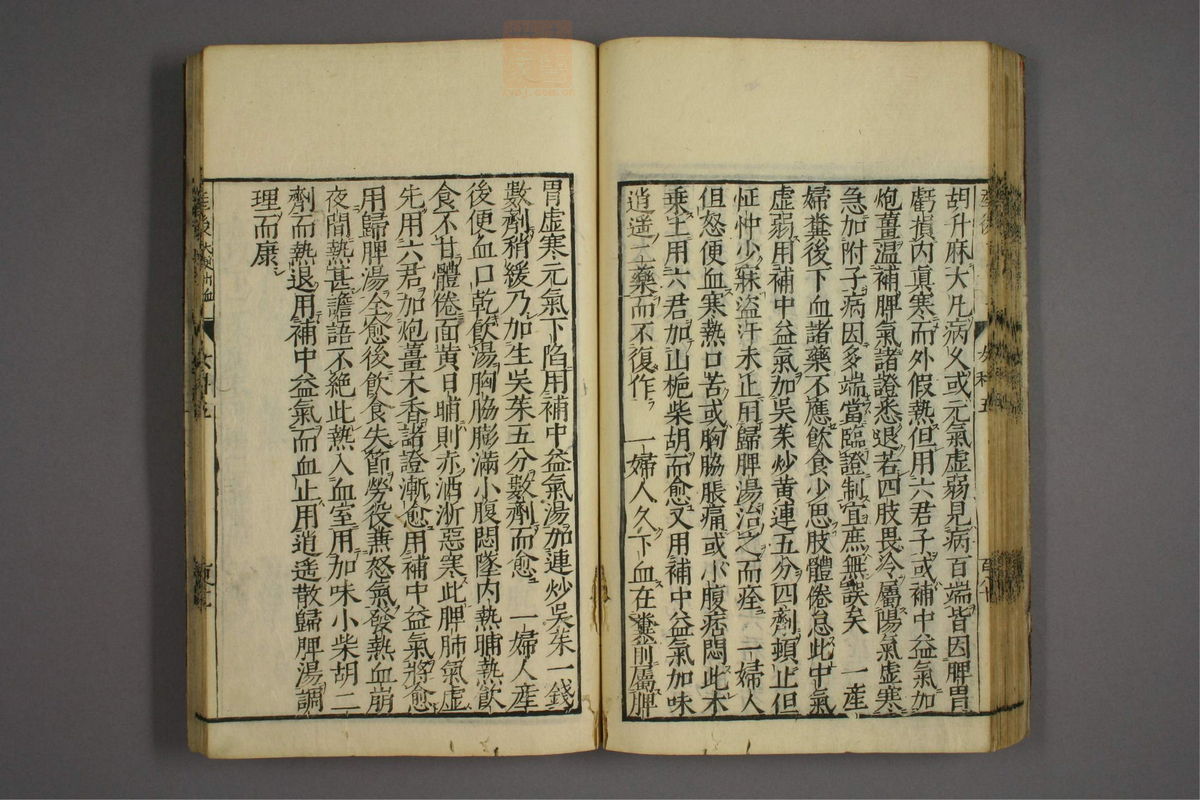 胡升麻大凡病久或元氣虛弱見病百端皆因脾胃
虧損內眞寒而外假熱但用六君子或補中益氣加
炮薑溫補脾氣諸證悉退若四肢畏冷屬陽氣虛寒
急加附子病因多端當臨證制宜庶無誤矣　一產
婦糞後下血諸藥不應飲食少思肢體倦怠此中氣
虛弱用補中益氣加吳茱炒黃連五分四劑頓止但
怔忡少寐盜汗未止用歸脾湯治之而痊　一婦人
但怒便血寒熱口苦或胸脇脹痛或小腹痞悶此木
乘土用六君加山梔柴胡而愈又用補中益氣加味
逍遙二藥而不復作　一婦人久下血在糞前屬脾
胃虛寒元氣下陷用補中益氣湯加連炒吳茱一錢
數劑稍緩乃加生吳茱五分數劑而愈　一婦人產
後便血口乾飲湯胸脇膨滿小腹悶墜內熱晡熱飲
食不甘體倦面黃日晡則赤洒淅惡寒此脾肺氣虛
先用六君加炮薑木香諸證漸愈用補中益氣將愈
用歸脾湯全愈後飲食失節勞役兼怒氣發熱血崩
夜間熱甚譫語不絕此熱入血室用加味小柴胡二
劑而熱退用補中益氣而血止用逍遙散歸脾湯調
理而康
產後
女科五